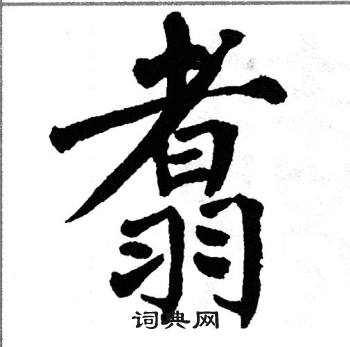 翥
词典网